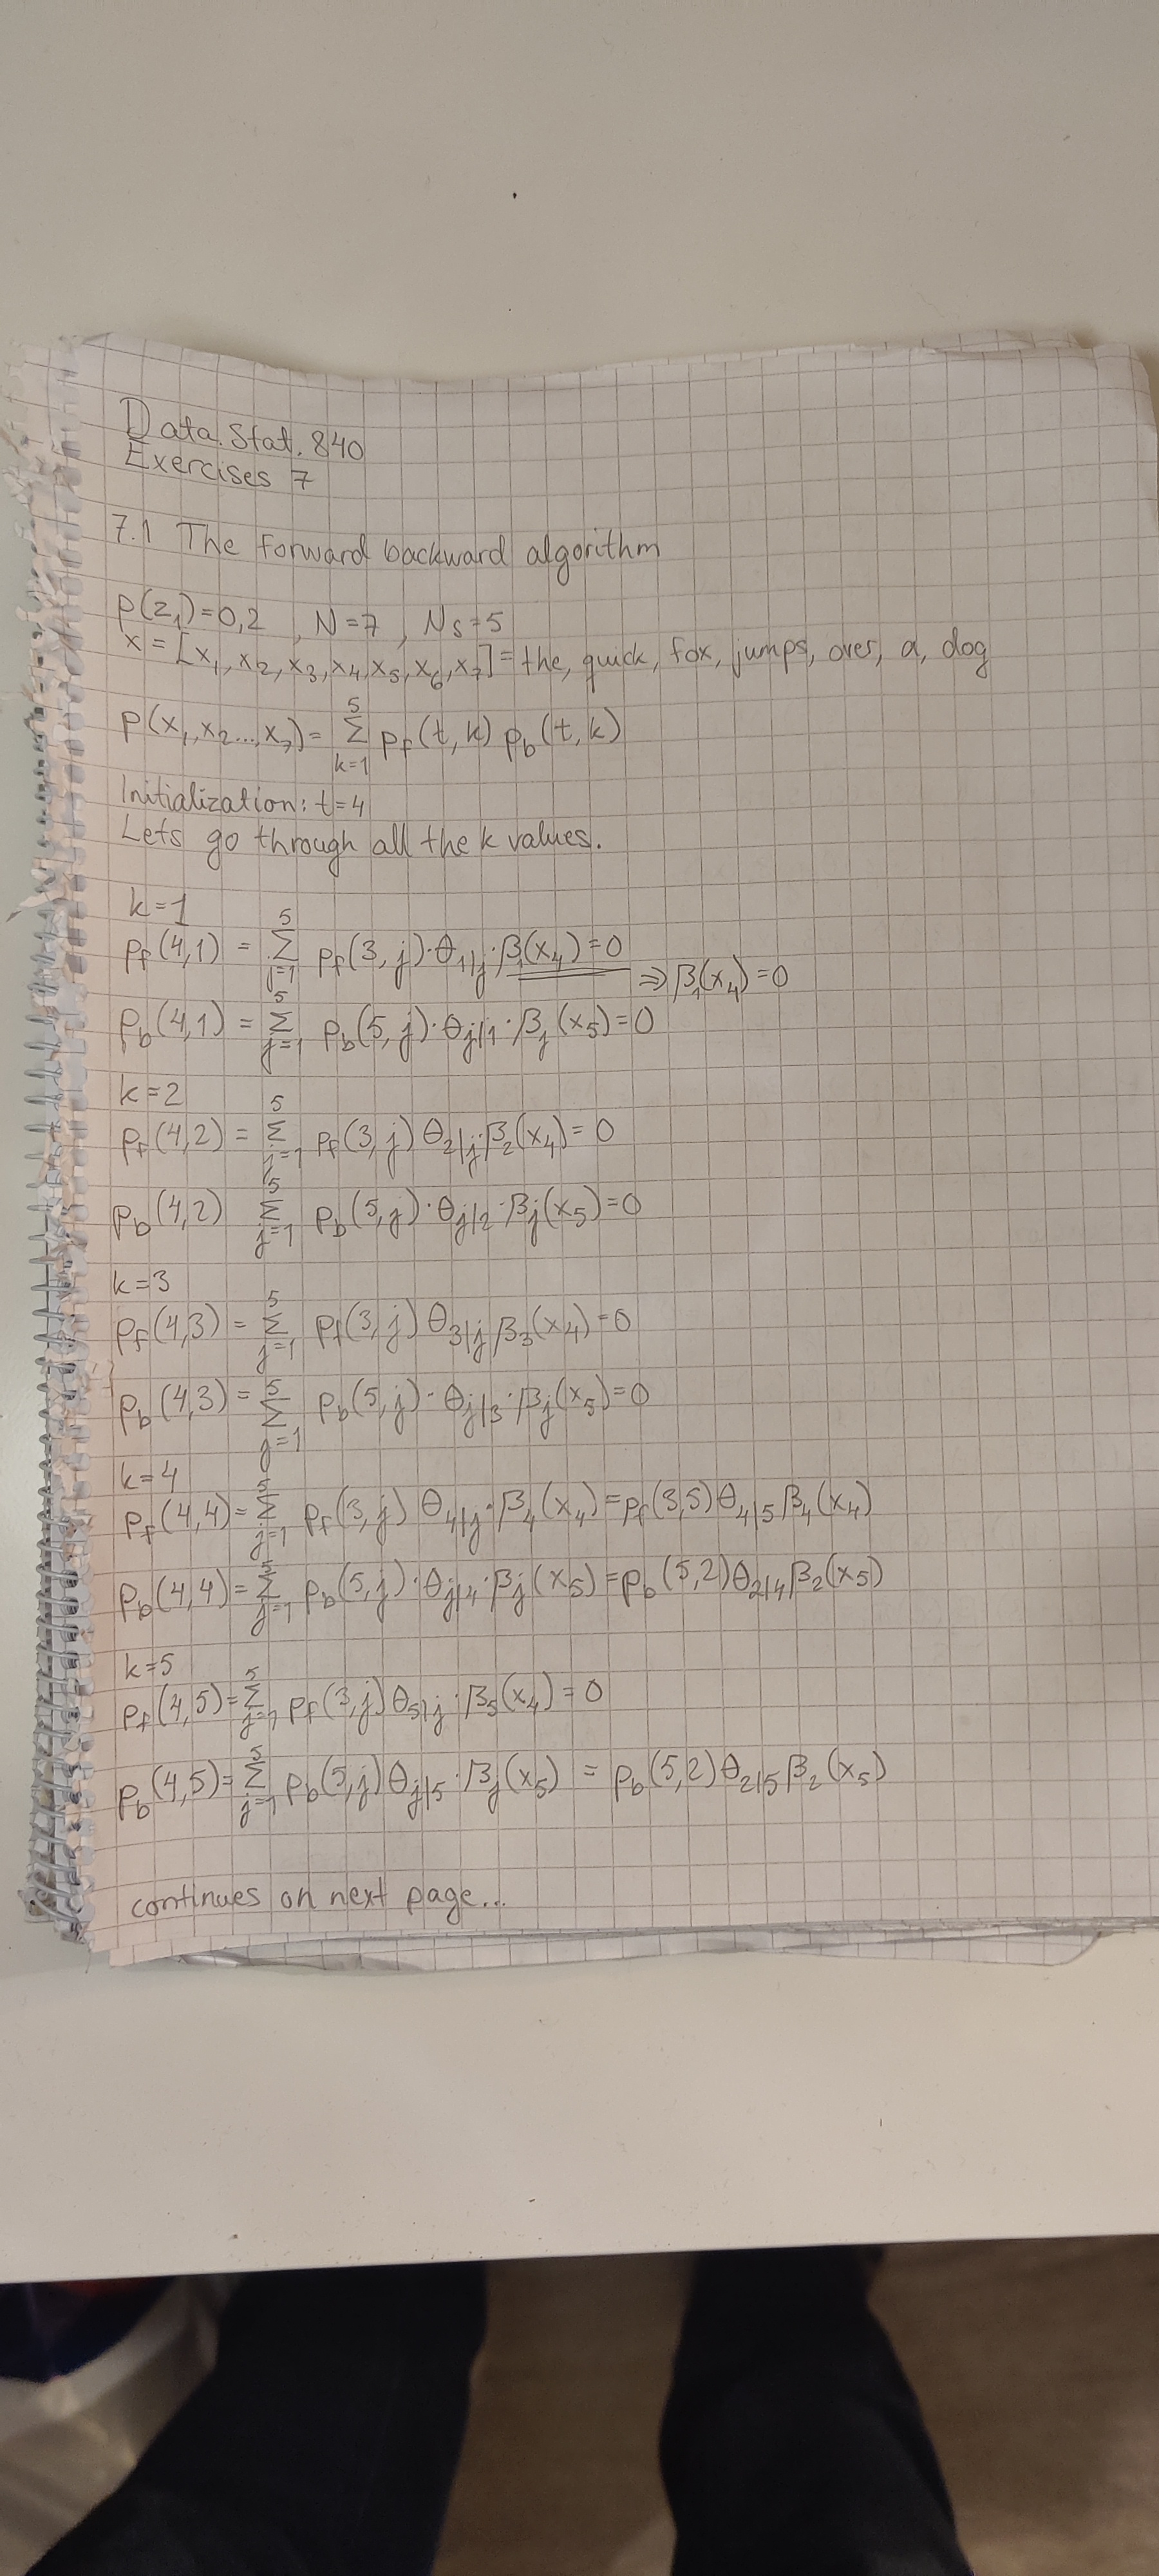 Data.Stat.840
Exercises 7
7.1 The forward backward algorithm
p(z₁)=0,2 , N=7 , Ns=5
x = [x₁, x₂, x₃, x₄, x₅, x₆, x₇] = the, quick, fox, jumps, over, a, dog
p(x₁,x₂...,x₇)= ∑_{k=1}^{5} p_f(t,k) p_b(t,k)
Initialization: t=4
Lets go through all the k values.
k=1
p_f(4,1) = ∑_{j=1}^{5} p_f(3,j)·θ_{1|j}·β₁(x₄)=0 ⇒ β₁(x₄)=0
p_b(4,1) = ∑_{j=1}^{5} p_b(5,j)·θ_{j|1}·β_j(x₅)=0
k=2
p_f(4,2) = ∑_{j=1}^{5} p_f(3,j) θ_{2|j}·β₂(x₄)=0
p_b(4,2) ∑_{j=1}^{5} p_b(5,j)·θ_{j|2}·β_j(x₅)=0
k=3
p_f(4,3) = ∑_{j=1}^{5} p_f(3,j) θ_{3|j} β₃(x₄)=0
p_b(4,3) = ∑_{j=1}^{5} p_b(5,j)·θ_{j|3}·β_j(x₅)=0
k=4
p_f(4,4)= ∑_{j=1}^{5} p_f(3,j) θ_{4|j}·β₄(x₄)=p_f(3,5)θ_{4|5} β₄(x₄)
p_b(4,4)= ∑_{j=1}^{5} p_b(5,j)·θ_{j|4}·β_j(x₅)=p_b(5,2)θ_{2|4}β₂(x₅)
k=5
p_f(4,5)= ∑_{j=1}^{5} p_f(3,j)θ_{5|j}·β₅(x₄)=0
p_b(4,5)= ∑_{j=1}^{5} p_b(5,j)θ_{j|5}·β_j(x₅) = p_b(5,2)θ_{2|5}β₂(x₅)
continues on next page...